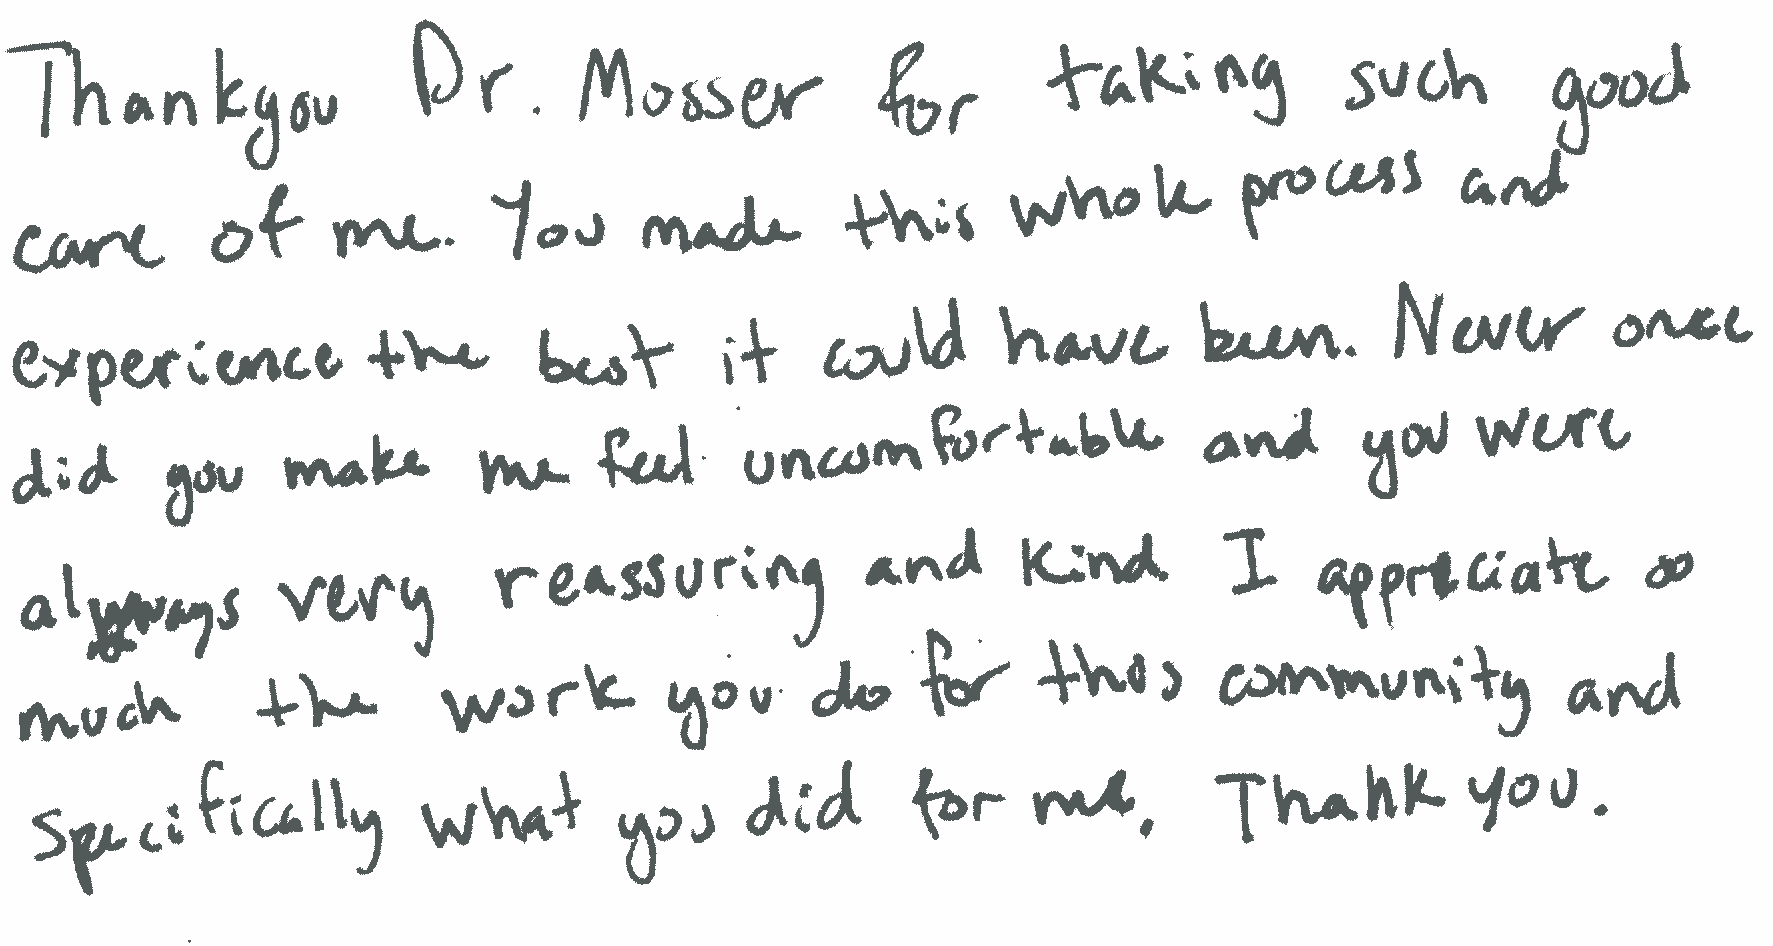 Thankyou Dr. Mosser for taking such good
care of me. You made this whole process and
experience the best it could have been. Never once
did you make me feel uncomfortable and you were
always very reassuring and kind. I appreciate so
much the work you do for this community and
specifically what you did for me. Thank you.